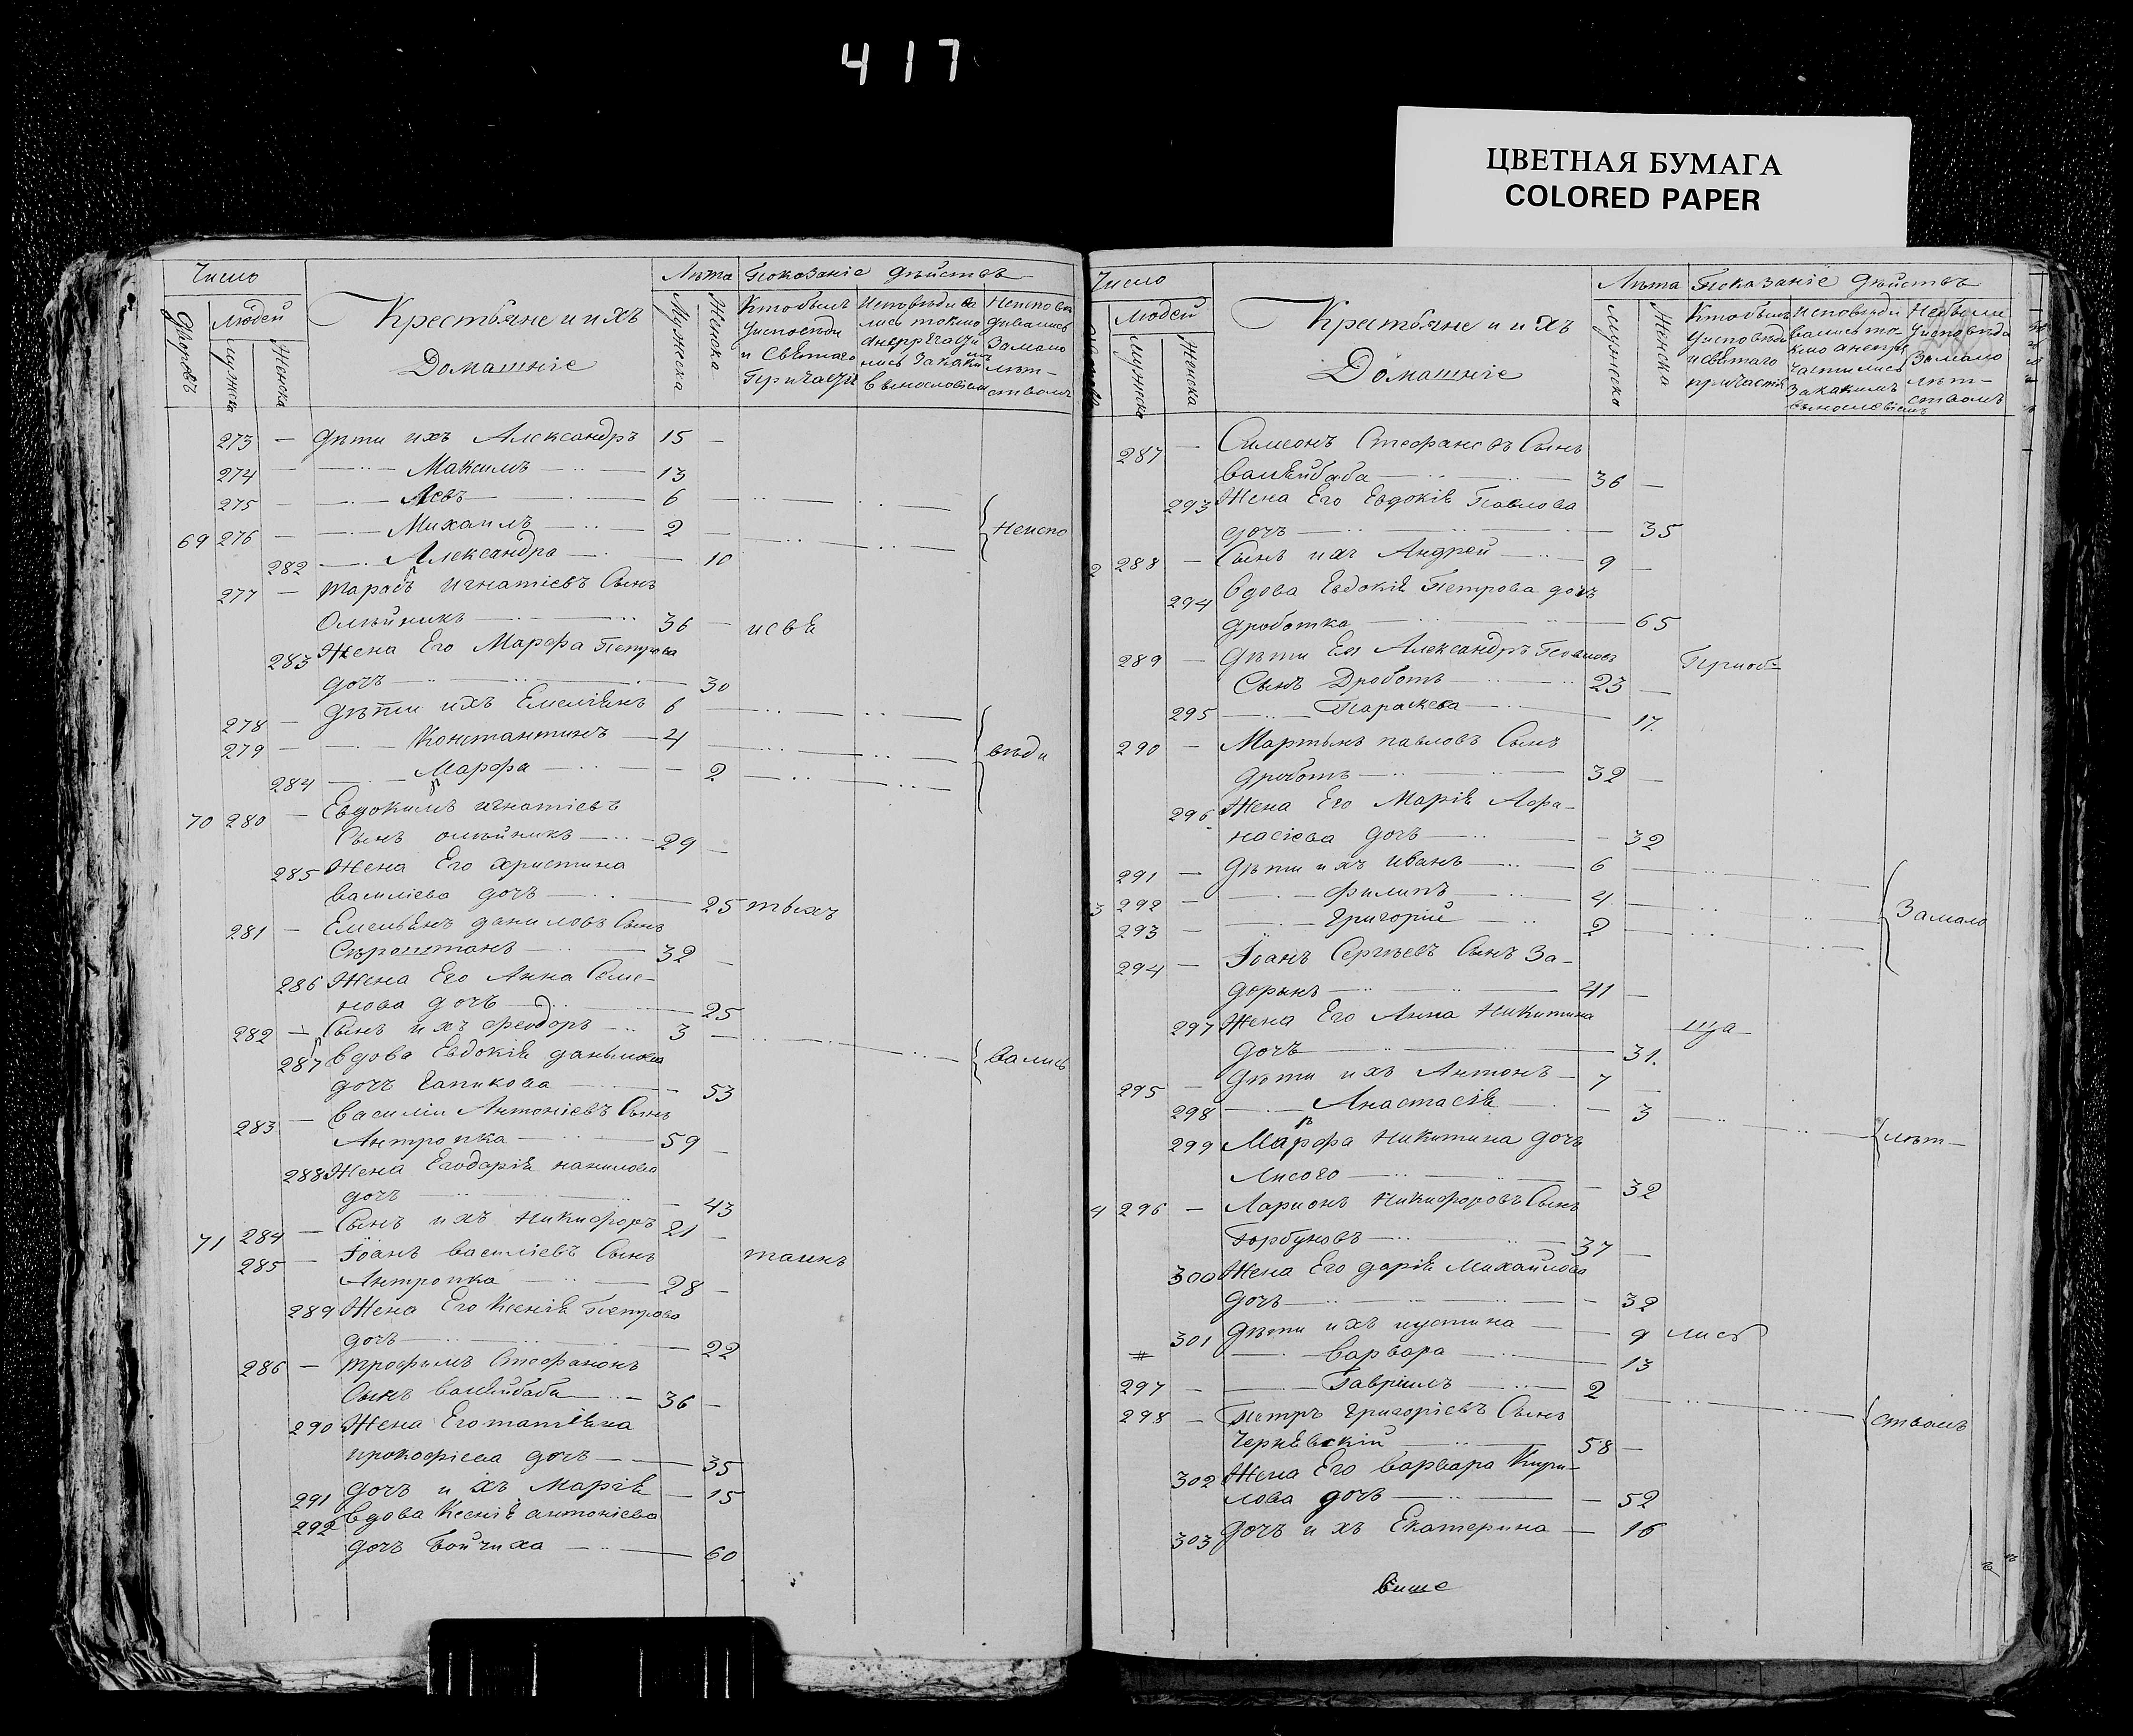 417
ЦВЕТНАЯ БУМАГА
COLORED PAPER
Число
Лѣта Показаніе дѣйствъ
Дворовъ
Людей
Мужска
Женска
Крестьяне и ихъ
Домашніе
Мужеска
Женска
Кто былъ
Исповѣдива
Неиспов
лись токмо
дивались
и Святаго
Замало
Причастія
лѣт-
ствомъ
273 — дѣти ихъ Александръ 15 —
274 — Максимъ — 13
275 — Левъ — 6
69 276 — Михаилъ — 2 Неиспо
282 — Александра — 10
277 — Тарасъ Игнатіевъ Сынъ
Олѣйникъ — 36 — исвя
283 Жена Его Марфа Петрова
дочь — 30
278 — дѣти ихъ Емеліянъ 6
279 — Константинъ — 4 вѣди
284 — Марфа — 2
70 280 — Евдокимъ игнатіевъ
Сынъ олѣйникъ — 29 —
285 Жена Его христина
василіева дочь — 25 тыхъ
281 — Емельянъ даниловъ Сынъ
Сѣроштанъ — 32 —
286 Жена Его Анна Семе-
нова дочь — 25
282 — Сынъ ихъ феодоръ — 3
287 вдова Евдокія данилова вались
дочь Гапикова — 53
283 — Василіи Антоніевъ Сынъ
Антропка — 59 —
288 Жена Его дарія
дочь — 43
284 — Сынъ ихъ Никифоръ 21 —
71 285 — Іоанъ василіевъ Сынъ таинъ
Антропка — 28 —
289 Жена Его Ксенія Петрова
дочь — 22
286 — трофимъ Стефановъ
Сынъ — 36 —
290 Жена Его татіяна
прокофіева дочь — 35
291 дочь ихъ Марія — 15
292 вдова Ксенія антоніева
дочь Бойчиха — 60
Число
Лѣта Показаніе дѣйствъ
Людей
Мужска
Женска
Крестьяне и ихъ
Домашніе
Мужеско
Женска
Кто былъ
Неисповѣди
Небыли
Уисповѣди
вались то-
Уисповѣда
исвятаго
Замало
причастія
частились
лѣт-
Закакимъ
ствомъ
вынословіемъ
287 — Симеонъ Стефановъ Сынъ
— 36 —
293 Жена Его Евдокія Павлова
дочь — 35
2 288 — Сынъ ихъ Андрей — 9 —
294 Вдова Евдокія Петрова дочь
дроботка — 65
289 — Дѣти Ея Александръ Павловъ Приоб-
Сынъ Дроботъ — 23 —
295 — Параскева — 17.
290 — Мартынъ павловъ Сынъ
дроботъ — 32 —
296 Жена Его Марія Афа-
насіева дочь — 32
291 — Дѣти ихъ Иванъ — 6
3 292 — филипъ — 4 Замало
293 — Григорій — 2
294 — Іоанъ Сергѣевъ Сынъ За-
— 41 —
297 Жена Его Анна Никитина ща
дочь — 31.
295 — дѣти ихъ Антонъ — 7 —
298 — Анастасія — 3 лѣт-
299 Марфа Никитина дочь
Лисого — 32
4 296 — Ларионъ Никифоровъ Сынъ
Горбуновъ — 37 —
300 Жена Его дарія Михайлова
дочь — 32
301 дѣти ихъ іустина — 9 лись
# — варвара — 13
297 — Гавріилъ — 2
298 — Петръ Григоріевъ Сынъ ствомъ
Чернявскій — 58 —
302 Жена Его варвара Кири-
лова дочь — 52
303 дочь ихъ Екатерина — 16